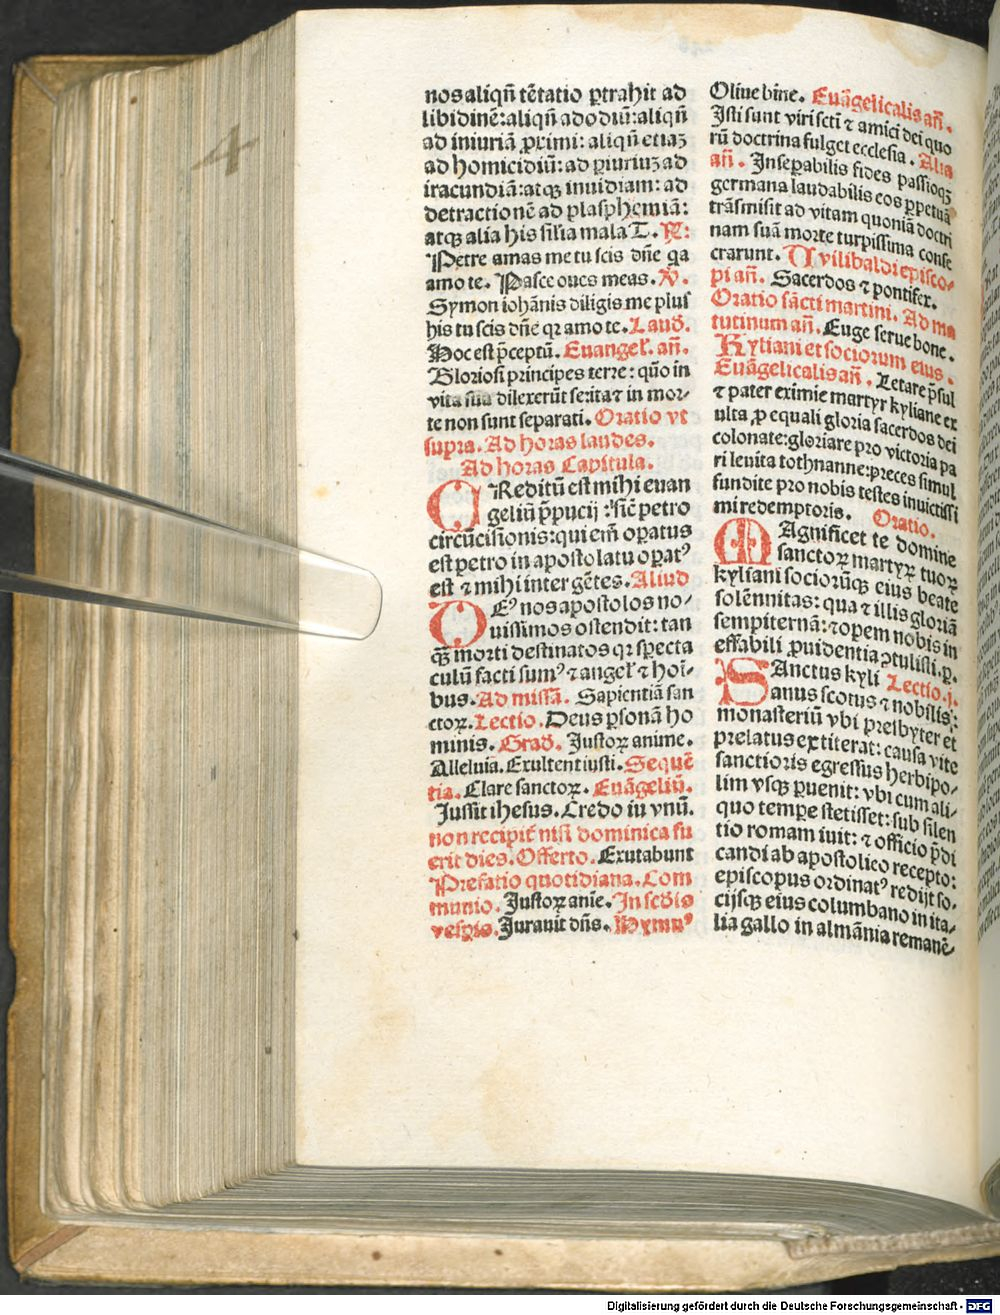 nos aliqn̄ tētatio ꝓtrahit ad
libidinē: aliqn̄ ad odiū: aliqn̄
ad iniuriā ꝓximi: aliqn̄ etiaꝫ
ad homicidiū: ad ꝑiuriuꝫ ad
iracundiā: atqꝫ inuidiam: ad
detractionē ad plasphemiā:
atqꝫ alia his sil̄ia mala T. ꝶ:
Petre amas me tu scis dn̄e qꝛ
amo te. Pasce oues meas. ꝟ.
Symon iohānis diligis me plus
his tu scis dn̄e qꝛ amo te. Laud̄.
Hoc est p̄ceptū. Euangel̄. an̄.
Gloriosi principes terre: quō in
vita sua dilexerūt se: ita ⁊ in mor-
te non sunt separati. Oratio vt
supra. Ad horas laudes.
Ad horas Capitula.
CReditū est mihi euan
geliū p̄pucij: sic̄ petro
circūcisionis: qui em̄ oꝑatus
est petro in apostolatu oꝑatꝰ
est ⁊ mihi inter gētes. Aliud
DEꝰ nos apostolos no-
uissimos ostendit: tan
qꝫ morti destinatos qꝛ specta
culū facti sumꝰ ⁊ angel̄ ⁊ hoī-
bus. Ad missā. Sapientiā san
ctoꝝ. Lectio. Deus ꝑsonā ho
minis. Grad̄. Justoꝝ anime.
Alleluia. Exultent iusti. Sequē
tia. Clare sanctoꝝ. Euāgeliū.
Jussit ihesus. Credo in vnū.
non recipit̄ nisi dominica fu
erit dies. Offerto. Exutabunt
Prefatio quotidiana. Com
munio. Justoꝝ anīe. In scd̄is
vesꝑis. Jurauit dn̄s. Hymnꝰ
Oliue bine. Euāgelicalis an̄.
Jsti sunt viri sctī ⁊ amici dei quo
rū doctrina fulget ecclesia. Alia
an̄. Jnseꝑabilis fides passioqꝫ
germana laudabilis eos ꝑpetuā
trāsmisit ad vitam quoniā doctri
nam suā morte turpissima conse
crarunt. Uuilibaldi episco-
pi an̄. Sacerdos ⁊ pontifex.
Oratio sācti martini. Ad ma
tutinum an̄. Euge serue bone.
Kyliani et sociorum eius.
Euāgelicalis an̄. Letare p̄sul
⁊ pater eximie martyr kyliane ex
ulta ꝓ equali gloria sacerdos dei
colonate: gloriare pro victoria pa
ri leuita tothnanne: preces simul
fundite pro nobis testes inuictissi
mi redemptoris. Oratio.
MAgnificet te domine
sanctoꝝ martyꝝ tuoꝝ
kyliani sociorūqꝫ eius beate
solēnnitas: qua ⁊ illis gloriā
sempiternā: ⁊ opem nobis in
effabili ꝓuidentia ꝓtulisti. ꝑ.
SAnctus kyli Lectio. j.
anus scotus ⁊ nobilis:
monasteriū vbi presbyter et
prelatus extiterat: causa vite
sanctioris egressus herbipo-
lim vsqꝫ ꝑuenit: vbi cum ali-
quo tempe stetisset: sub silen
tio romam iuit: ⁊ officio p̄di
candi ab apostolico recepto:
episcopus ordinatꝰ redijt so-
cijsqꝫ eius columbano in ita-
lia gallo in almānia remanē-
4
Digitalisierung gefördert durch die Deutsche Forschungsgemeinschaft - DFG